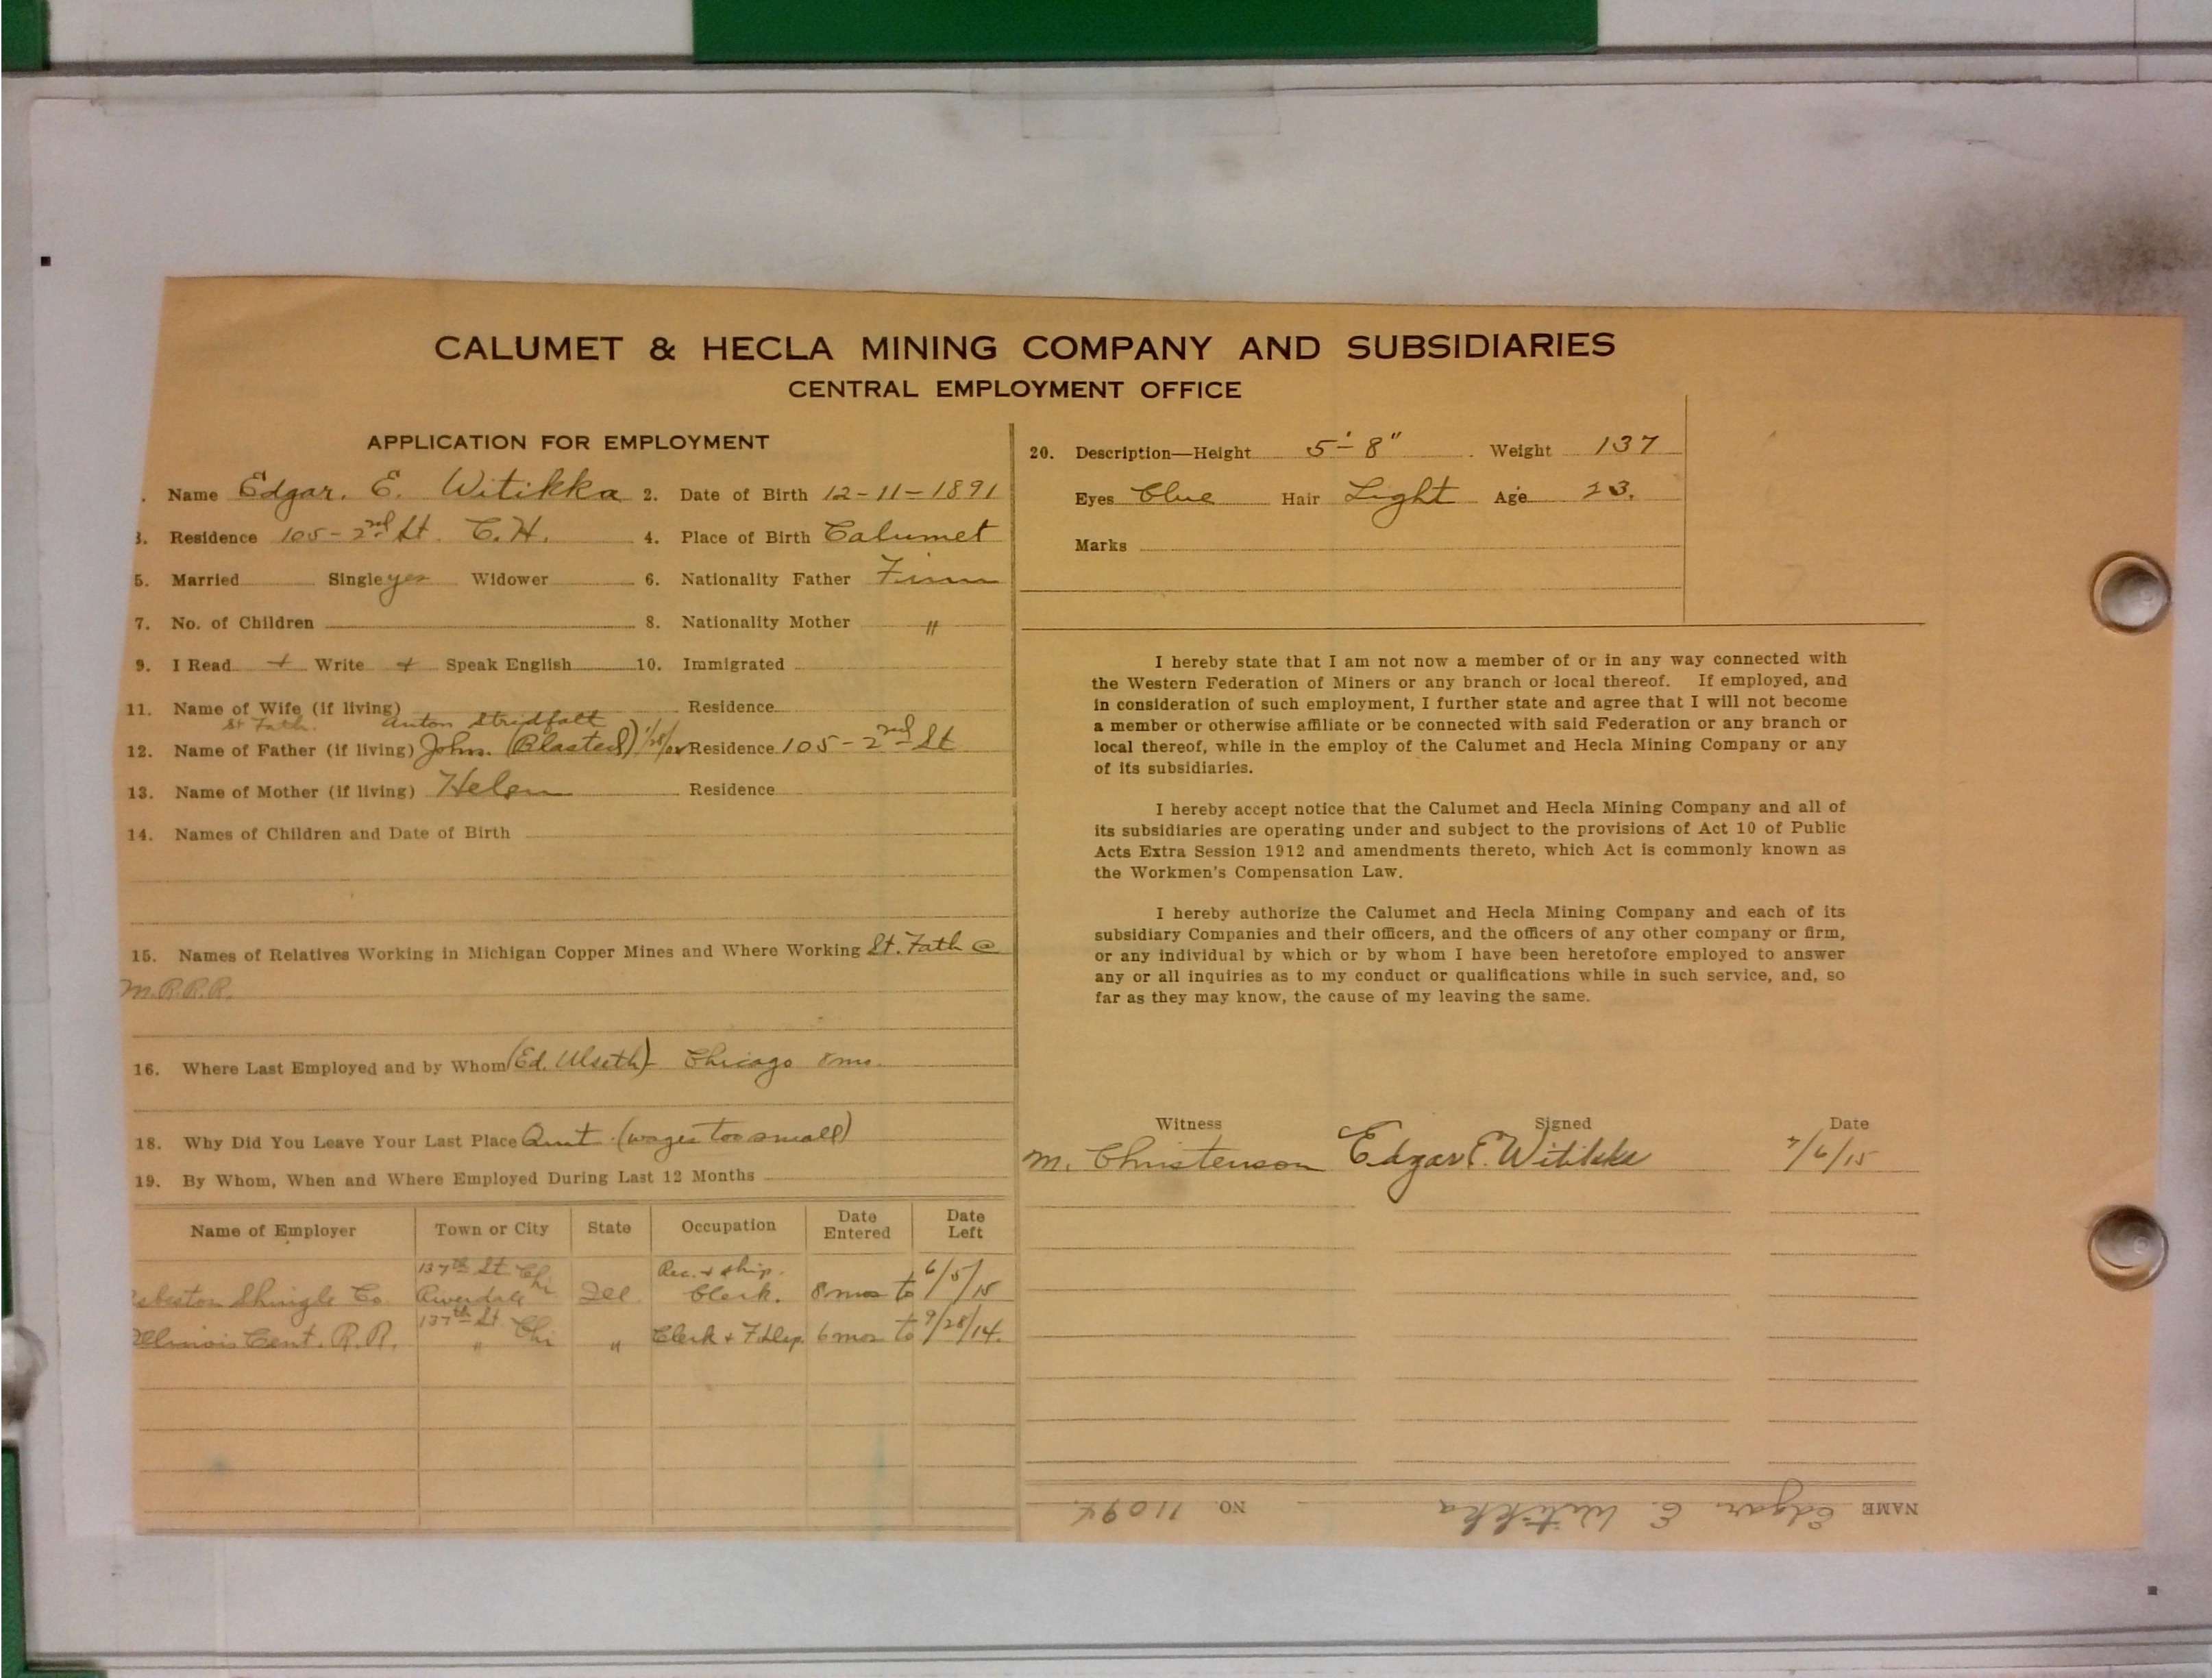 CALUMET & HECLA MINING COMPANY AND SUBSIDIARIES
CENTRAL EMPLOYMENT OFFICE
APPLICATION FOR EMPLOYMENT
. Name Edgar. E. Witikka 2. Date of Birth 12-11-1891
3. Residence 105-2nd St. C.H. 4. Place of Birth Calumet
5. Married Single yes Widower 6. Nationality Father Finn
7. No. of Children 8. Nationality Mother "
9. I Read + Write + Speak English 10. Immigrated
11. Name of Wife (if living) Residence
St Fath. Anton Stridfalt
12. Name of Father (if living) John. (Blasted) Residence 105-2nd St
13. Name of Mother (if living) Helen Residence
14. Names of Children and Date of Birth
15. Names of Relatives Working in Michigan Copper Mines and Where Working St. Fath @
M.R.R.R.
16. Where Last Employed and by Whom (Ed. Ulseth) Chicago 8 mo.
18. Why Did You Leave Your Last Place Quit. (wages too small)
19. By Whom, When and Where Employed During Last 12 Months
Name of Employer Town or City State Occupation Date Entered Date Left
137th St Chi Rec. & Ship.
sbestos Shingle Co. Riverdale Ill. Clerk. 8 mos to 6/5/15
137th St
Illinois Cent. R.R. " Chi " Clerk + 6 mos to 9/28/14.
20. Description—Height 5'-8" Weight 137
Eyes Blue Hair Light Age 23.
Marks
I hereby state that I am not now a member of or in any way connected with
the Western Federation of Miners or any branch or local thereof. If employed, and
in consideration of such employment, I further state and agree that I will not become
a member or otherwise affiliate or be connected with said Federation or any branch or
local thereof, while in the employ of the Calumet and Hecla Mining Company or any
of its subsidiaries.
I hereby accept notice that the Calumet and Hecla Mining Company and all of
its subsidiaries are operating under and subject to the provisions of Act 10 of Public
Acts Extra Session 1912 and amendments thereto, which Act is commonly known as
the Workmen's Compensation Law.
I hereby authorize the Calumet and Hecla Mining Company and each of its
subsidiary Companies and their officers, and the officers of any other company or firm,
or any individual by which or by whom I have been heretofore employed to answer
any or all inquiries as to my conduct or qualifications while in such service, and, so
far as they may know, the cause of my leaving the same.
Witness Signed Date
M. Christenson Edgar E. Witikka 7/6/15
NAME Edgar E. Witikka NO. 11094